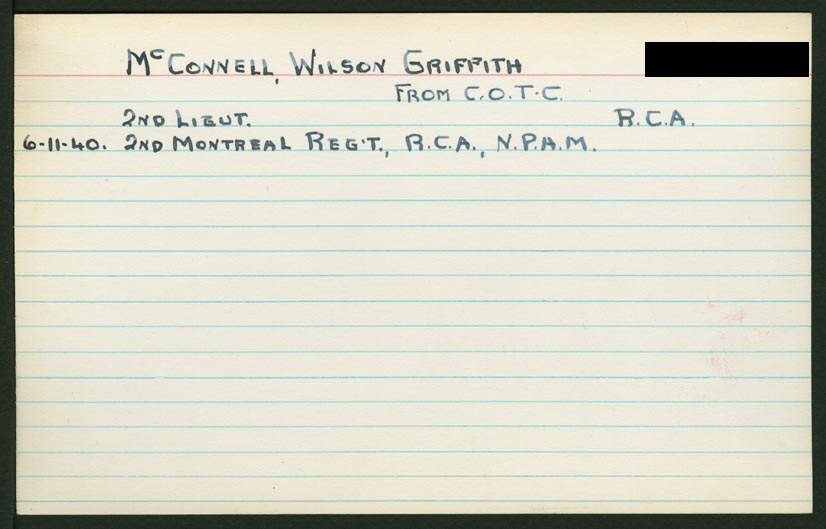 McCONNELL, WILSON GRIFFITH
FROM C.O.T.C.
2ND LIEUT. R.C.A.
6-11-40. 2ND MONTREAL REG'T., R.C.A., N.P.A.M.